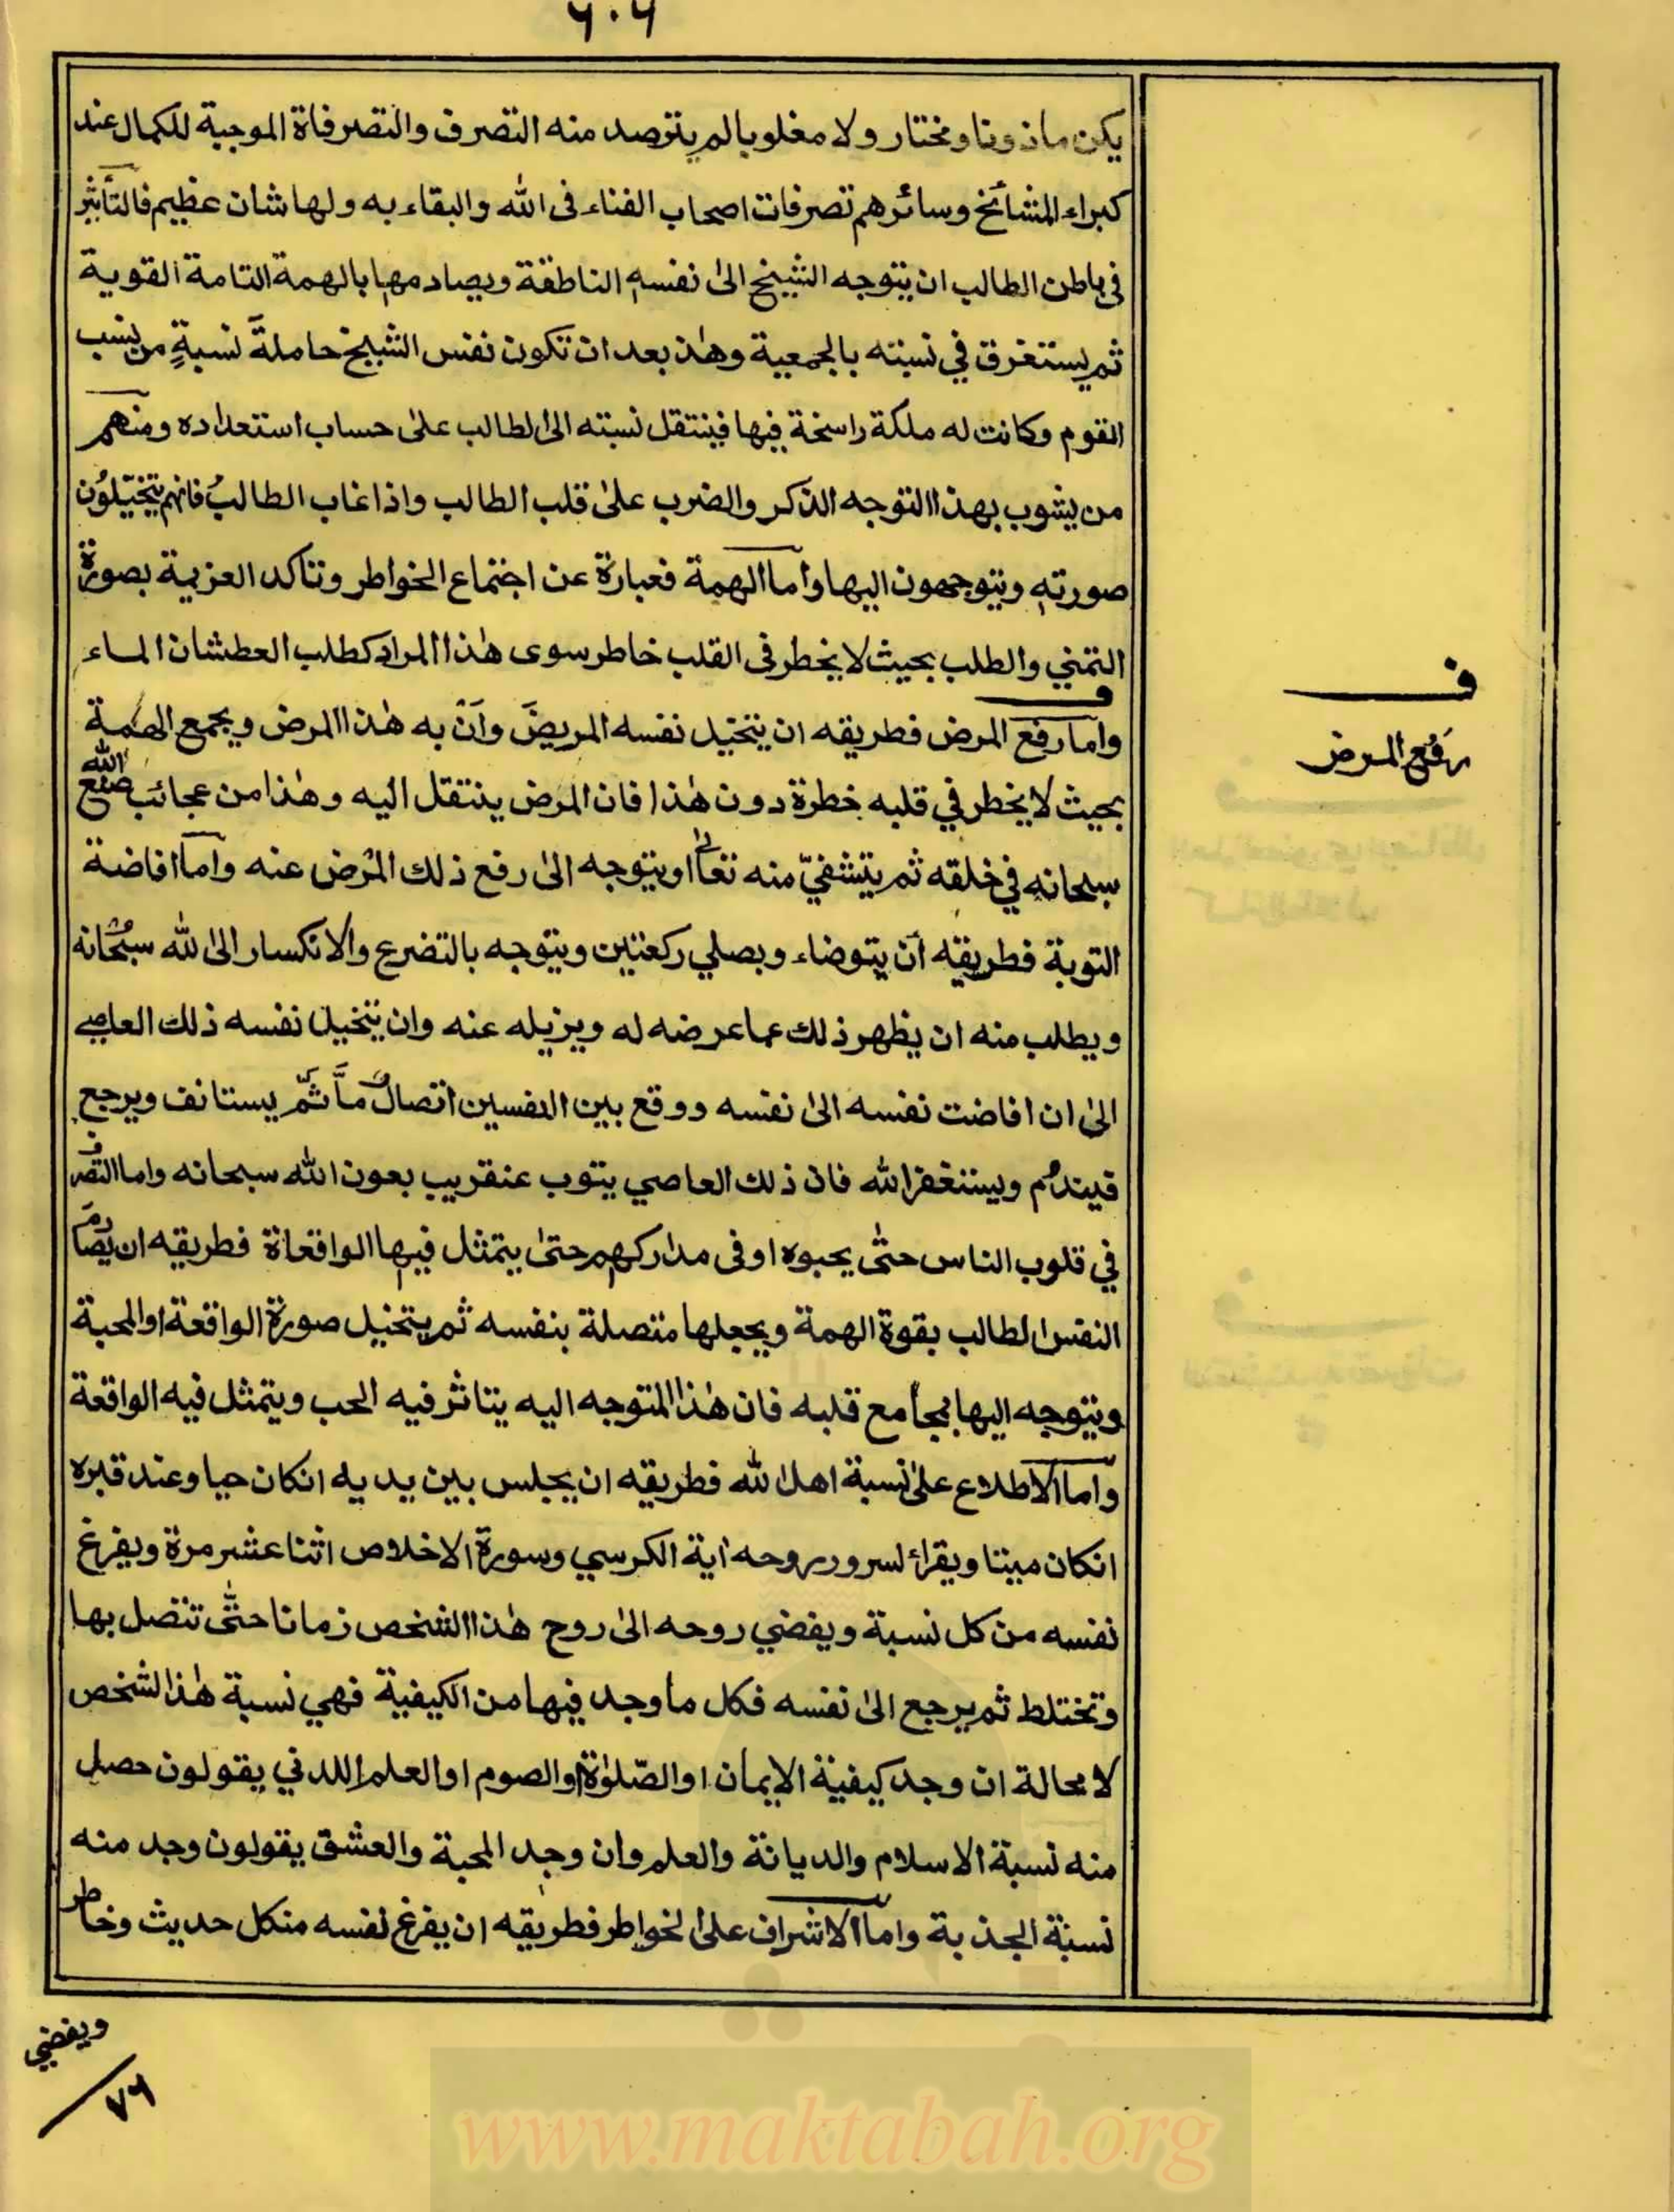 ٦٠٦
يكن ماذونا ومختار ولا مغلوبا لم يترصد منه التصرف والتصرفاة الموجبة للكمال عند
كبراء المشائخ وسائرهم تصرفات اصحاب الفناء فى الله والبقاء به ولها شان عظيم فالتأثير
في باطن الطالب ان يتوجه الشيخ الىٰ نفسهٖ الناطقة ويصادمها بالهمة التامة القوية
ثم يستغرق في نسبته بالجمعية وهذا بعد ان تكون نفس الشيخ حاملةً نسبةٍ من نسب
القوم وكانت له ملكة راسخة فيها فينتقل نسبته الى الطالب علىٰ حساب استعداده ومنهم
من يشوب بهذا التوجه الذكر والضرب علىٰ قلب الطالب واذا غاب الطالبُ فانهم يتخيّلوُن
صورتهٖ ويتوجهون اليها واما الهمة فعبارة عن اجتماع الخواطر وتاكد العزيمة بصورة
التمني والطلب بحيث لا يخطر فى القلب خاطر سوى هٰذا المراد كطلب العطشان الماء
واما رفع المرض فطريقه ان يتخيل نفسه المريضَ وأنّ به هٰذا المرض ويجمع الهمة
بحيث لا يخطر في قلبه خطرة دون هٰذا فان المرض ينتقل اليه وهٰذا من عجائب صنع الله
سبحانه في خلقه ثم يتشفيّ منه تعالىٰ او يتوجه الىٰ رفع ذلك المرض عنه واما افاضة
التوبة فطريقه أن يتوضاء ويصلي ركعتين ويتوجه بالتضرع والانكسار الى الله سبحانه
ويطلب منه ان يظهر ذلك عما عرضه له ويزيله عنه وان يتخيل نفسه ذلك العاصي
الىٰ ان افاضت نفسه الىٰ نفسه ووقع بين النفسين اتصالٌ مّا ثمّ يستانف ويرجع
فيندم ويستغفر الله فان ذلك العاصي يتوب عنقريب بعون الله سبحانه واما التصرف
في قلوب الناس حتّى يحبوه او فى مداركهم حتىٰ يتمثل فيها الواقعاة فطريقه ان يصادم
النفس الطالب بقوة الهمة ويجعلها متصلة بنفسه ثم يتخيل صورة الواقعة او المحبة
ويتوجه اليها بمجامع قلبه فان هٰذا المتوجه اليه يتاثر فيه الحب ويتمثل فيه الواقعة
واما الاطلاع علىٰ نسبة اهل الله فطريقه ان يجلس بين يديه انكان حيا وعند قبره
انكان ميتا ويقراء لسرور روحه اية الكرسي وسورة الاخلاص اثنا عشر مرة ويفرغ
نفسه من كل نسبة ويفضي روحه الىٰ روح هٰذا الشخص زمانا حتّٰى تتصل بها
وتختلط ثم يرجع الىٰ نفسه فكل ما وجد فيها من الكيفية فهي نسبة هٰذا الشخص
لا محالة ان وجد كيفية الايمان او الصّلوٰة او الصوم او العلم اللدني يقولون حصل
منه نسبة الاسلام والديانة والعلم وان وجد المحبة والعشق يقولون وجد منه
نسبة الجذبة واما الاشراف على الخواطر فطريقه ان يفرغ نفسه منكل حديث وخاطر
ف
رفع المرض
ويفضي
٧٦
www.maktabah.org